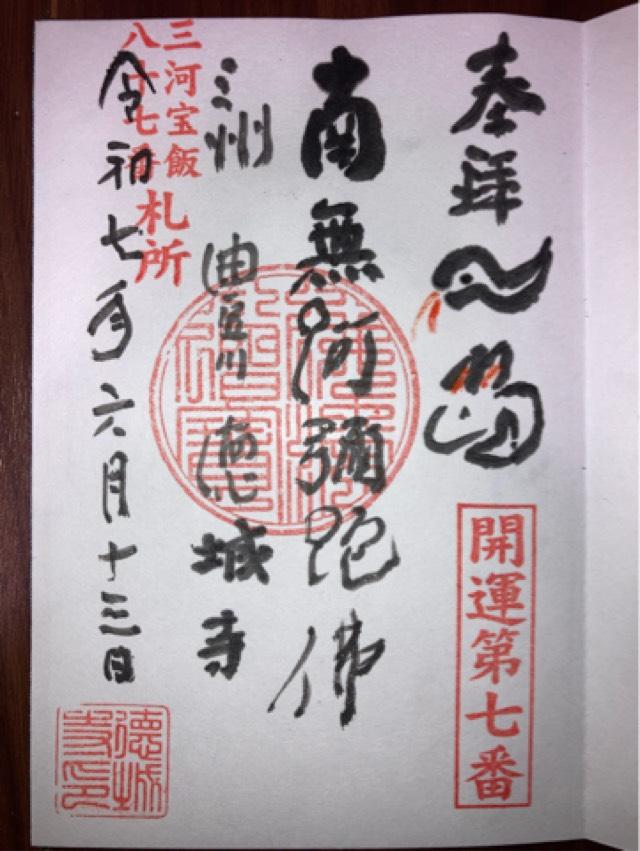 奉拝
開運第七番
南無阿彌陀佛
三州 豊川 徳城寺
三河宝飯
八十七番
札所
令和七年六月十三日
佛法僧寳
德城
寺印